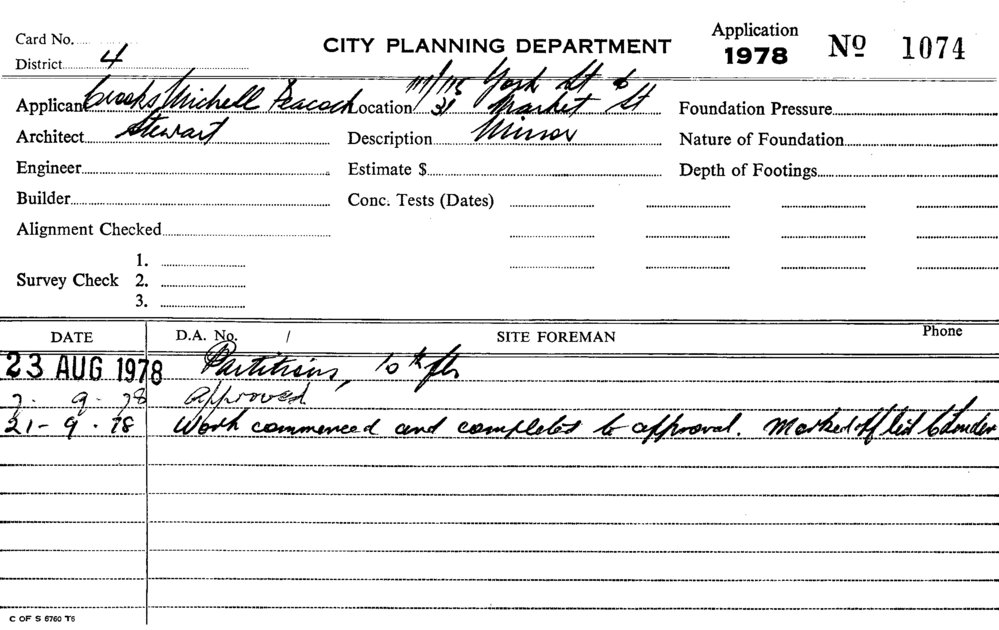 Card No.
CITY PLANNING DEPARTMENT
Application 1978 No 1074
District 4
Applicant Crooks Michell Peacock Location 111/115 York St & 31 Market St
Foundation Pressure
Architect Stewart Description Minor Nature of Foundation
Engineer Estimate $ Depth of Footings
Builder Conc. Tests (Dates)
Alignment Checked
1.
Survey Check 2.
3.
DATE D.A. No. / SITE FOREMAN Phone
23 AUG 1978 Partitions, 10th flr
7. 9. 78 Approved
21-9.78 Work commenced and completed to approval. Marked off list
C OF S 6760 T6